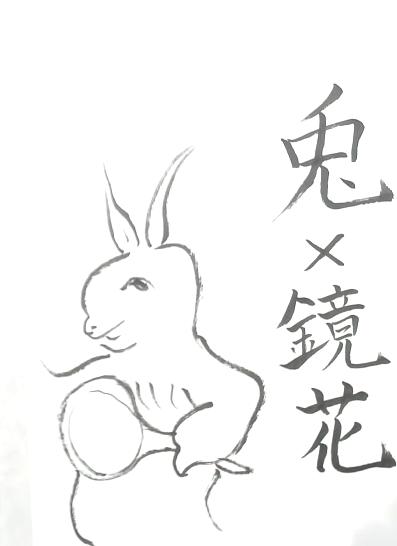 兎×鏡花